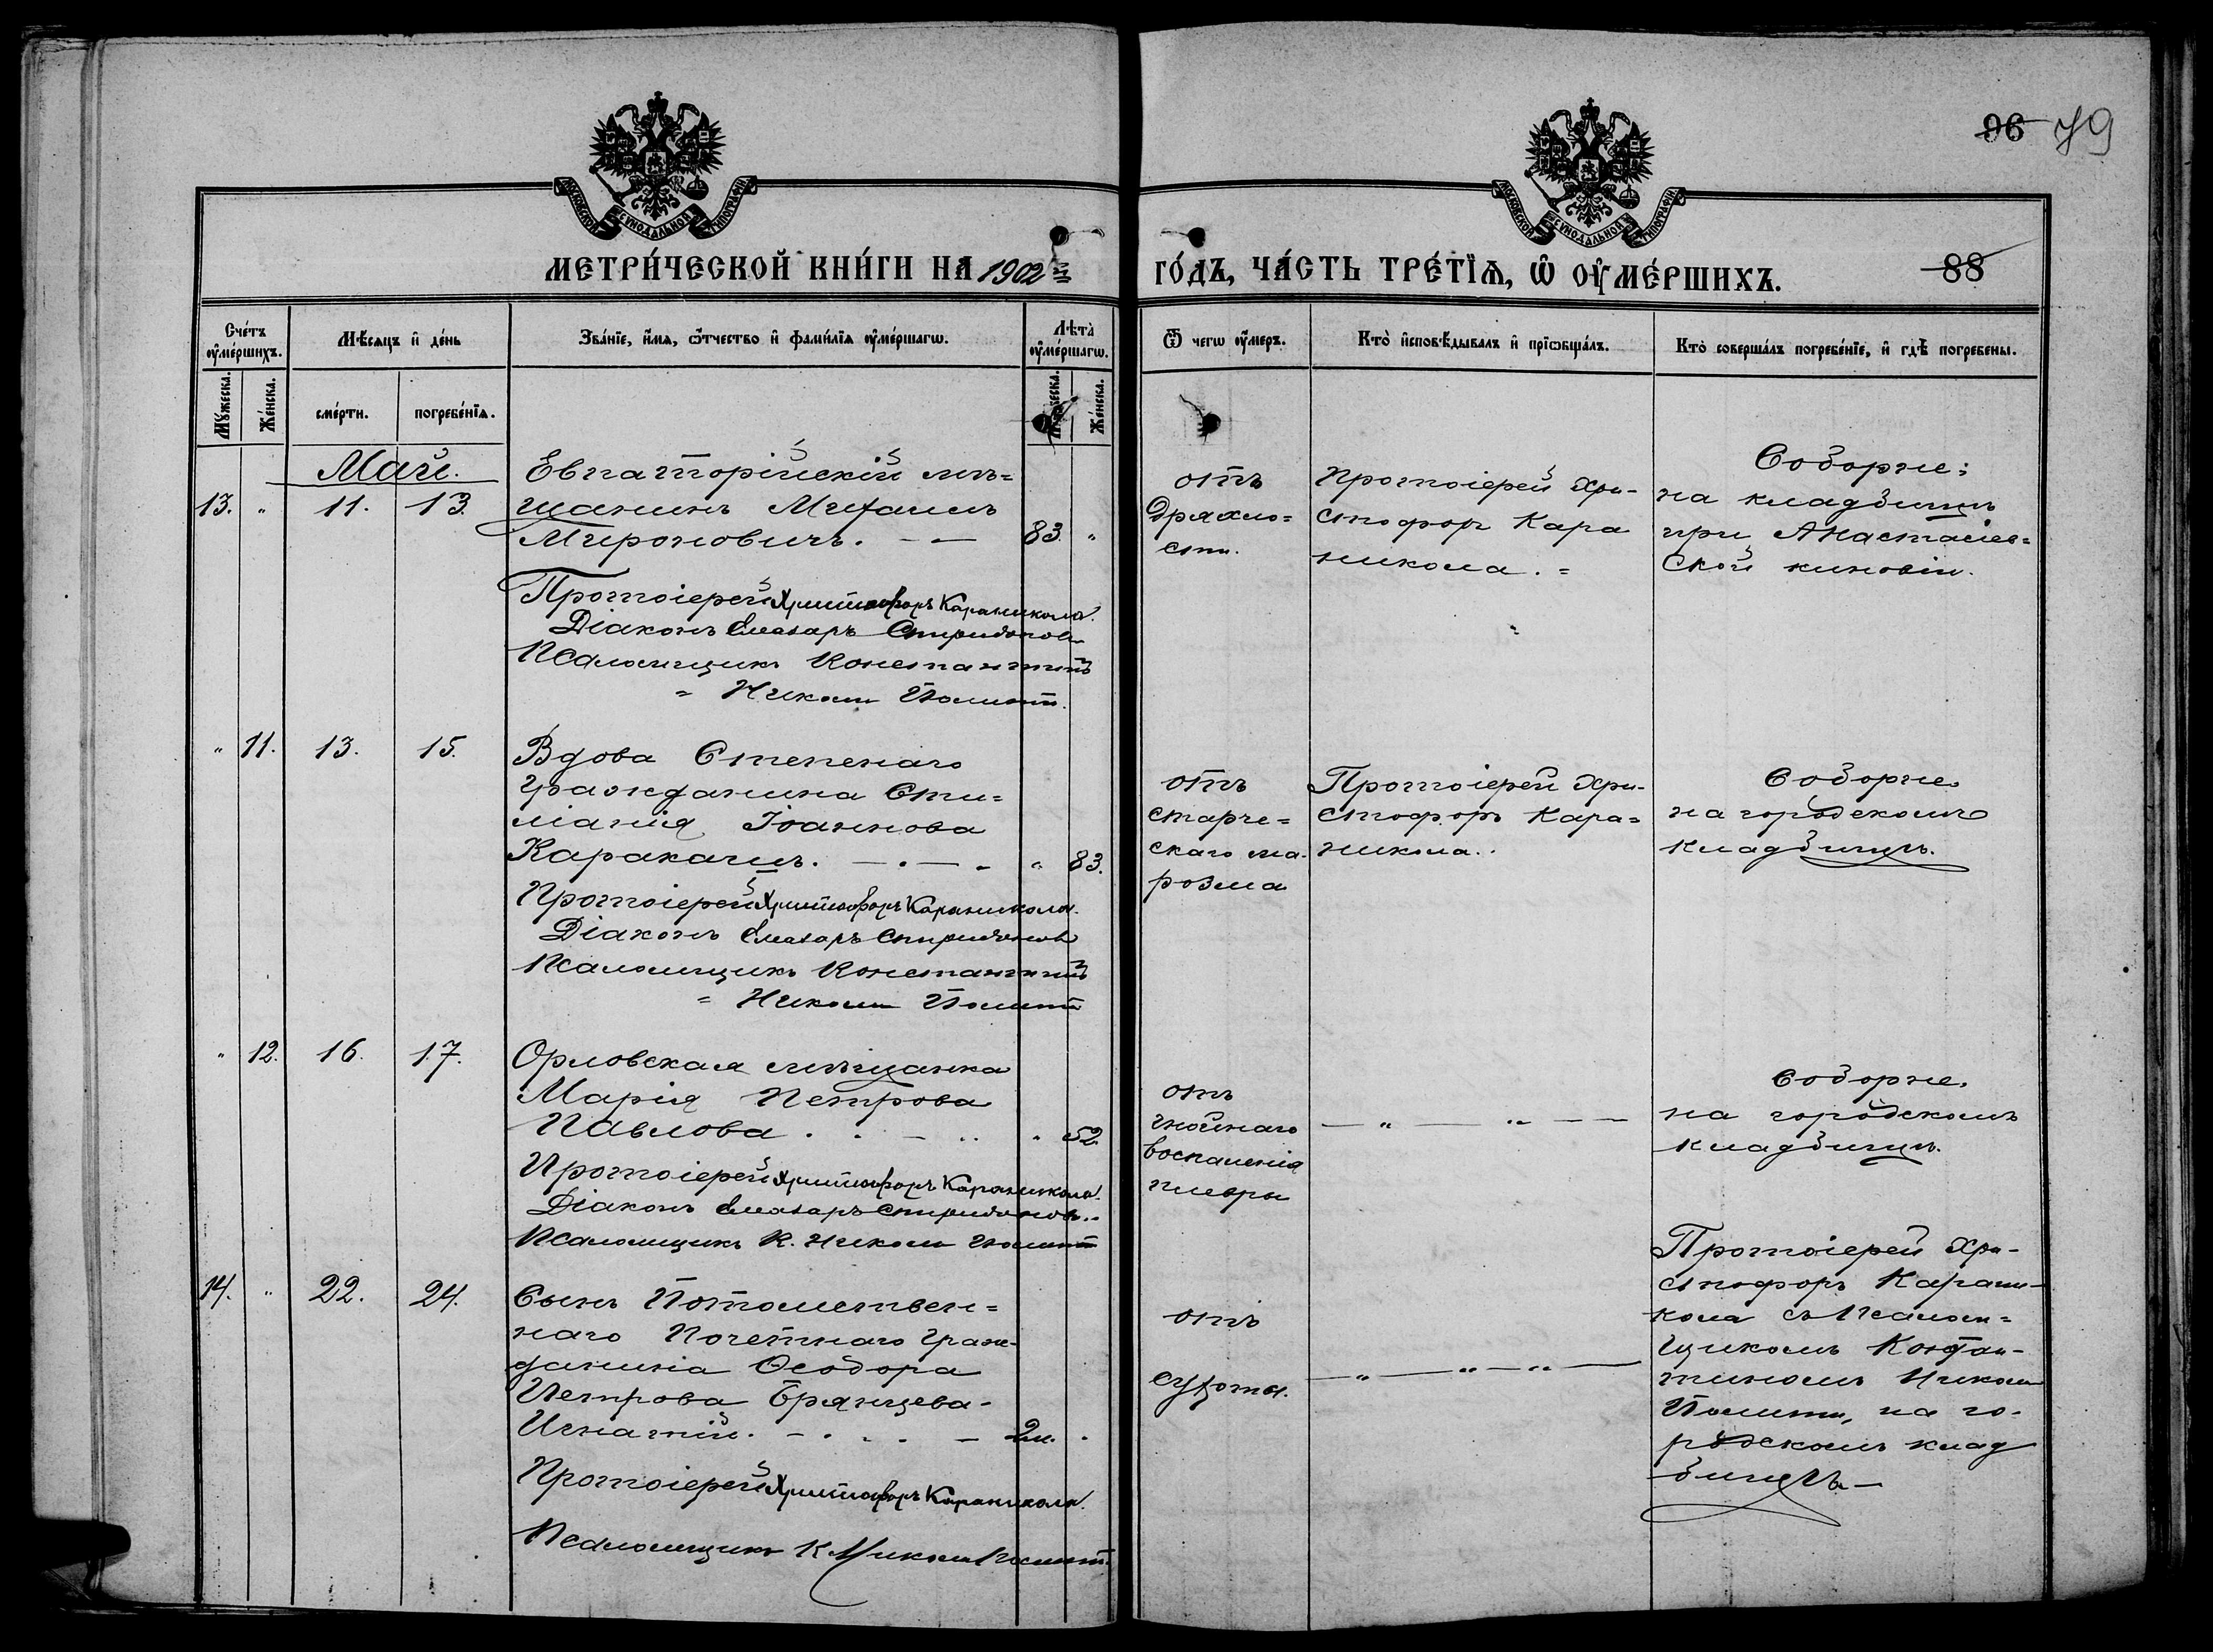 96 79
МОСКОВСКОЙ СѴНОДАЛЬНОЙ ТИПОГРАФІИ
МОСКОВСКОЙ СѴНОДАЛЬНОЙ ТИПОГРАФІИ
МЕТРИ́ЧЕСКОЙ КНИ́ГИ НА 1902й
ГО́ДЪ, ЧА́СТЬ ТРЕ́ТЇѦ, Ѡ ОУ҆МЕ́РШИХЪ.
88
Сче́тъ оу҆ме́ршихъ.
Мѣ́сѧцъ и҆ де́нь
Зва́нїе, и҆́мѧ, ѻ҆́тчество и҆ фами́лїѧ оу҆ме́ршагѡ.
Лѣ́та оу҆ме́ршагѡ.
Ѿ чегѡ̀ оу҆́меръ.
Кто̀ и҆сповѣ́дывалъ и҆ прїѡбща́лъ.
Кто̀ соверша́лъ погребе́нїе, и҆ гдѣ̀ погребены.
Мꙋ́жеска.
Же́нска.
сме́рти.
погребе́нїѧ.
Мꙋ́жеска.
Же́нска.
Май.
13. " 11. 13.
Евпаторійскій мѣ=
щанинъ Михаилъ
Мироновичъ. — — 83. "
Протоіерей Христофоръ Караникола.
Діаконъ Елеазаръ Спиридоновъ
Псаломщикъ Константинъ
= Никола Помити.
отъ
дряхло=
сти.
Протоіерей Хри-
стофоръ Кара
никола. =
Соборне:
на кладбищѣ
при Анастасіев=
ской киновіи.
" 11. 13. 15.
Вдова Степенаго
гражданина Сти=
ліанія Іоаннова
Каракашъ. — . — - " 83.
Протоіерей Христофоръ Караникола.
Діаконъ Елеазаръ Спиридоновъ
Псаломщикъ Константинъ
= Никола
отъ
старче=
скаго ма-
розма
Протоіерей Хри-
стофоръ Кара=
никола..
Соборне.
на городскомъ
кладбищѣ.
" 12. 16. 17.
Орловская мѣщанка
Марія Петрова
Павлова . . - .. . 52.
Протоіерей Христофоръ Караникола.
Діаконъ Елеазаръ Спиридоновъ.
Псаломщикъ К. Никола
отъ
гнойнаго
воспаленія
плевры
— " — " — —
Соборне.
на городскомъ
кладбищѣ.
14. " 22. 24.
Сынъ Потомствен=
наго Почетнаго граж-
данина Ѳеодора
Петрова Брянцева-
Игнатій. - . . - — 2м. .
Протоіерей Христофоръ Караникола.
Псаломщикъ К. Никола
отъ
— " — " — " —
Протоіерей Хри-
стофоръ Карани-
кола съ Псалом=
щикомъ Констан-
тиномъ Никола
на го-
родскомъ клад
бищѣ—